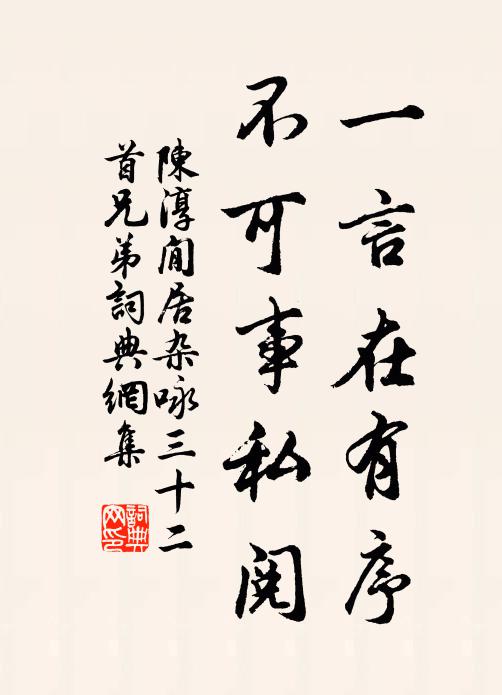 一言在有序
不可事私鬩
陳淳閒居杂咏三十二
首兄弟詞典網集
詞典
网印